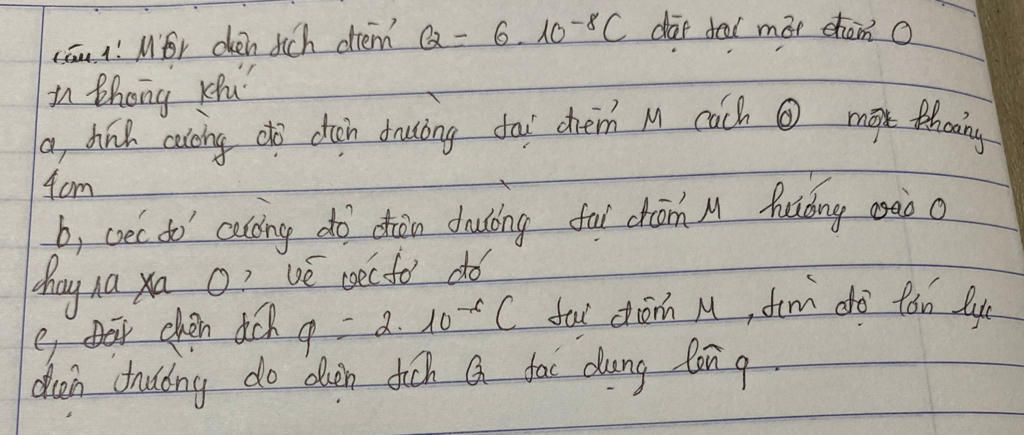 Câu 1: Một điện tích điểm Q = 6.10⁻⁸C đặt tại một điểm O
khống khí
a, tính cường độ điện trường tại điểm M cách O một khoảng
4cm
b, véc tơ cường độ điện trường tại điểm M hướng vào O
hay ra xa O? vẽ véc tơ đó
c, Đặt điện tích q = 2.10 C tại điểm M, tìm độ lớn lực
điện trường do điện tích Q tác dụng lên q.